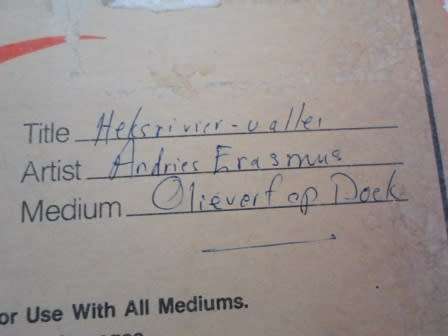 Title Heksrivier-vallei
Artist Andries Erasmus
Medium Olieverf op Doek
or Use With All Mediums.